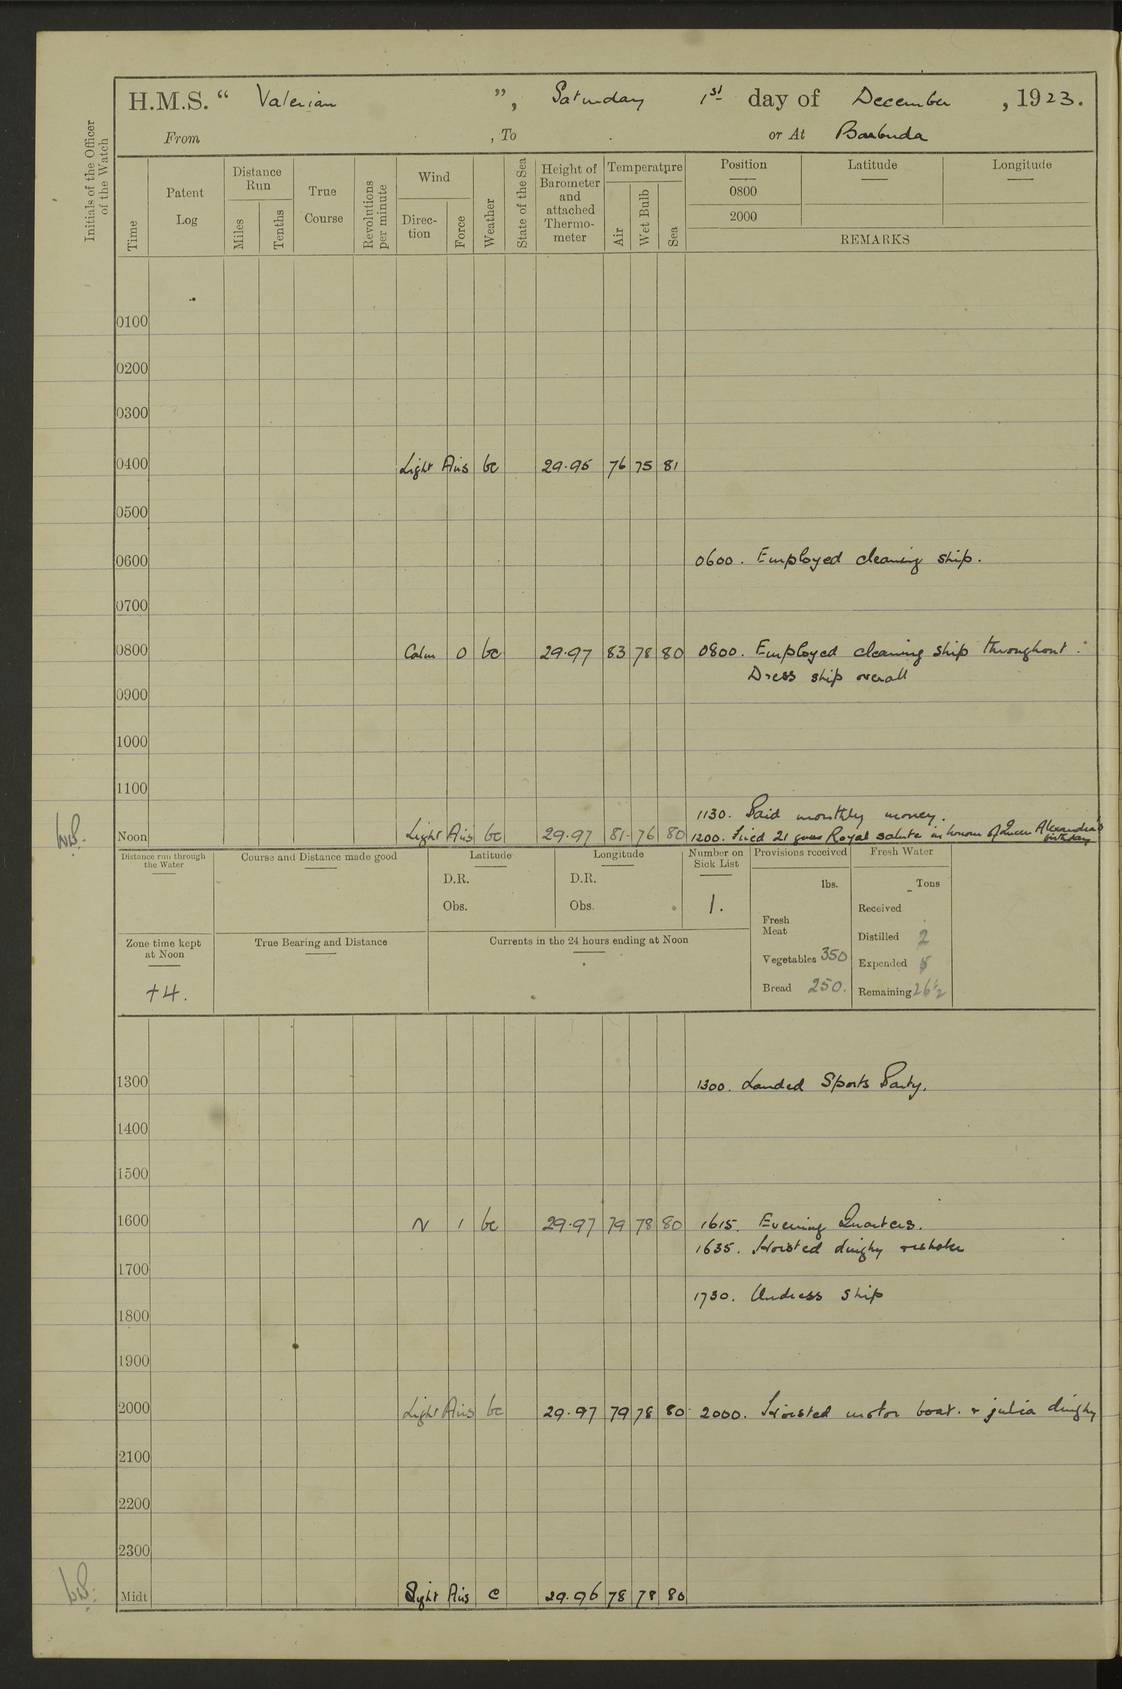 H.M.S. “ Valerian ”, Saturday 1st day of December, 1923.
From , To or At Barbuda
Initials of the Officer of the Watch
Time
Patent Log
Distance Run
Miles
Tenths
True Course
Revolutions per minute
Wind
Direc-tion
Force
Weather
State of the Sea
Height of Barometer and attached Thermo-meter
Temperature
Air
Wet Bulb
Sea
Position Latitude Longitude
0800
2000
REMARKS
0100
0200
0300
0400 Light Airs bc 29.95 76 75 81
0500
0600 0600. Employed cleaning ship.
0700
0800 Calm 0 bc 29.97 83 78 80 0800. Employed cleaning ship throughout.
Dress ship overall
0900
1000
1100
1130. Paid monthly money.
Noon Light Airs bc 29.97 81 76 80 1200. Fired 21 guns Royal salute in honour of Queen Alexandra's birthday
Distance run through the Water
Course and Distance made good
Latitude
D.R.
Obs.
Longitude
D.R.
Obs.
Number on Sick List
1.
Provisions received
lbs.
Fresh Meat
Vegetables 350
Bread 250.
Fresh Water
Tons
Received
Distilled 2
Expended 5
Remaining 26½
Zone time kept at Noon
+4.
True Bearing and Distance
Currents in the 24 hours ending at Noon
1300 1300. Landed Sports Party.
1400
1500
1600 N 1 bc 29.97 79 78 80 1615. Evening Quarters.
1635. Hoisted dinghy
1700
1730. Undress ship
1800
1900
2000 Light Airs bc 29.97 79 78 80 2000. Hoisted motor boat. & julia dinghy
2100
2200
2300
Midt Light Airs c 29.96 78 78 80